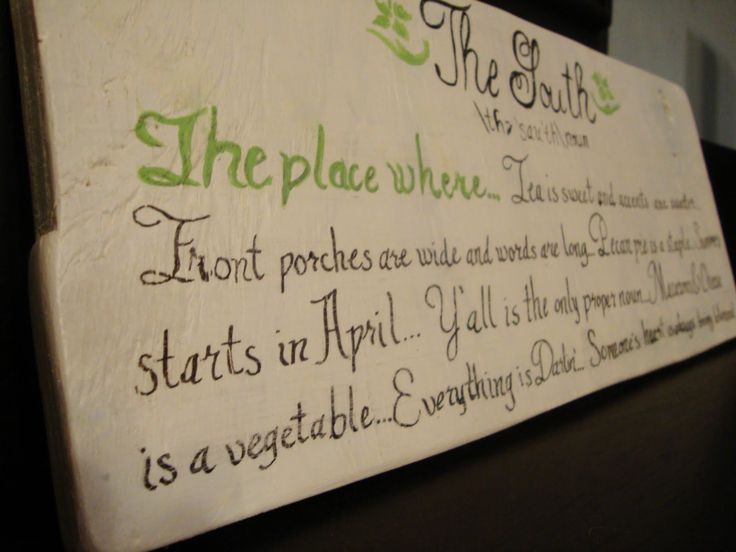 The South
\thə 'sau̇th\ noun
The place where... Tea is sweet and accents are sweeter...
Front porches are wide and words are long... Pecan pie is a staple... Summer
starts in April... Y'all is the only proper noun... Macaroni & Cheese
is a vegetable... Everything is Darlin'... Someone's heart is always being blessed